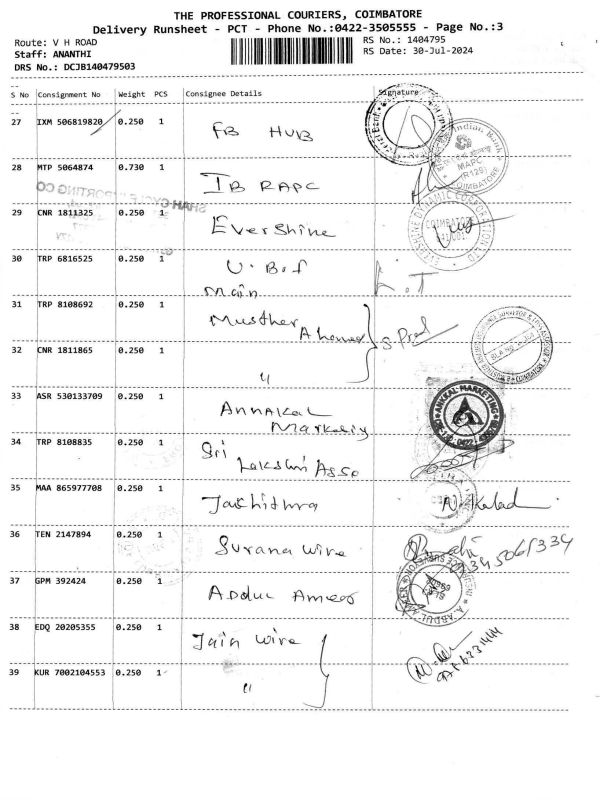 THE PROFESSIONAL COURIERS, COIMBATORE
Delivery Runsheet - PCT - Phone No.:0422-3505555 - Page No.:3
Route: V H ROAD
RS No.: 1404795
Staff: ANANTHI
RS Date: 30-Jul-2024
DRS No.: DCJB140479503
S No Consignment No Weight PCS Consignee Details Signature
27 IXM 506819820 0.250 1 FB HUB
28 MTP 5064874 0.730 1 IB RAPC
29 CNR 1811325 0.250 1 Evershine
30 TRP 6816525 0.250 1 U.B.I
Main
31 TRP 8108692 0.250 1 Musther Ahamed
32 CNR 1811865 0.250 1 "
33 ASR 530133709 0.250 1 ANNAKAL
Marketing
34 TRP 8108835 0.250 1 Sri
Lakshmi Asso
35 MAA 865977708 0.250 1 Jaichithra
36 TEN 2147894 0.250 1 Surana wire
37 GPM 392424 0.250 1 Abdul Ameer
38 EDQ 20205355 0.250 1 Jain wire
39 KUR 7002104553 0.250 1 "
Indian Bank
MAPC
COIMBATORE
COIMBATORE
ANNKAL MARKETING
A. ABDUL